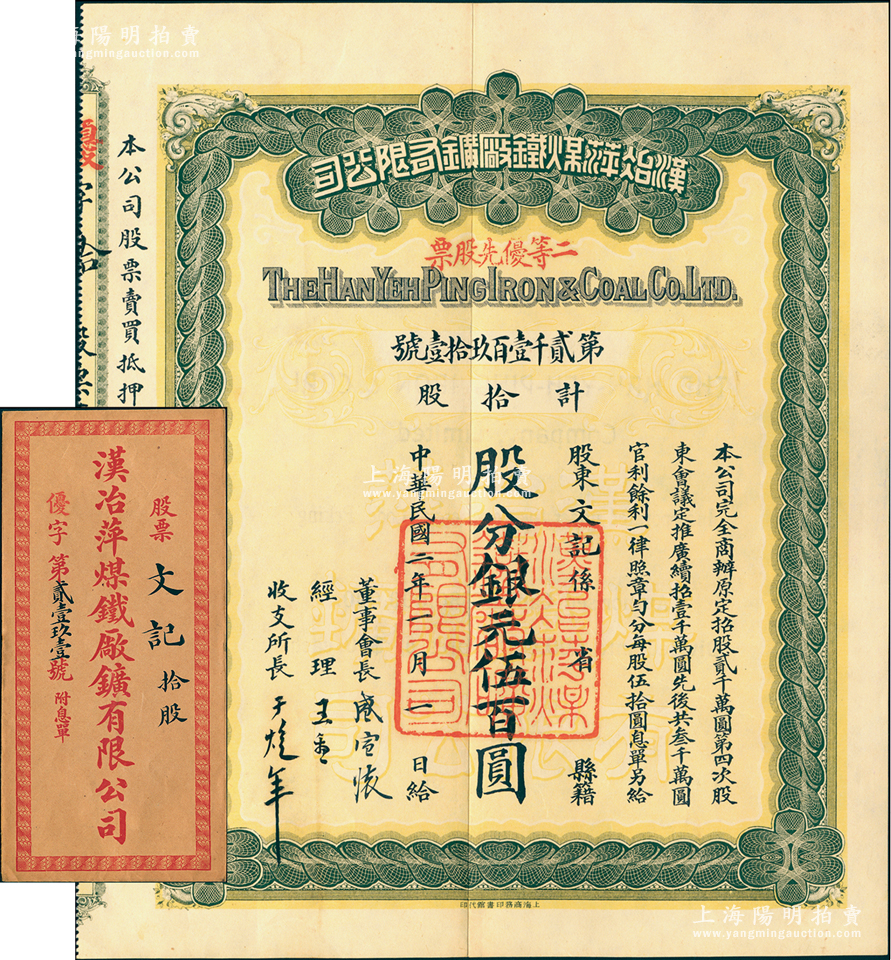 上海陽明拍賣
www.yangmingauction.com
漢冶萍煤鐵廠礦有限公司
二等優先股票
THE HAN YEH PING IRON & COAL CO. LTD.
第貳千壹百玖拾壹號
計拾股
本公司完全商辦原定招股貳千萬圓第四次股
東會議定推廣續招壹千萬圓先後共叁千萬圓
官利餘利一律照章勻分每股伍拾圓息單另給
股東文記係 省 縣籍
股分銀元伍百圓
中華民國二年一月一日給
董事會長盛宣懷
經理
收支所長于焌年
本公司股票賣買抵押
上海商務印書館代印
股票 文記 拾股
漢冶萍煤鐵廠鑛有限公司
優字第貳壹玖壹號 附息單
上海陽明拍賣
www.yangmingauction.com
上海陽明拍賣
www.yangmingauction.com